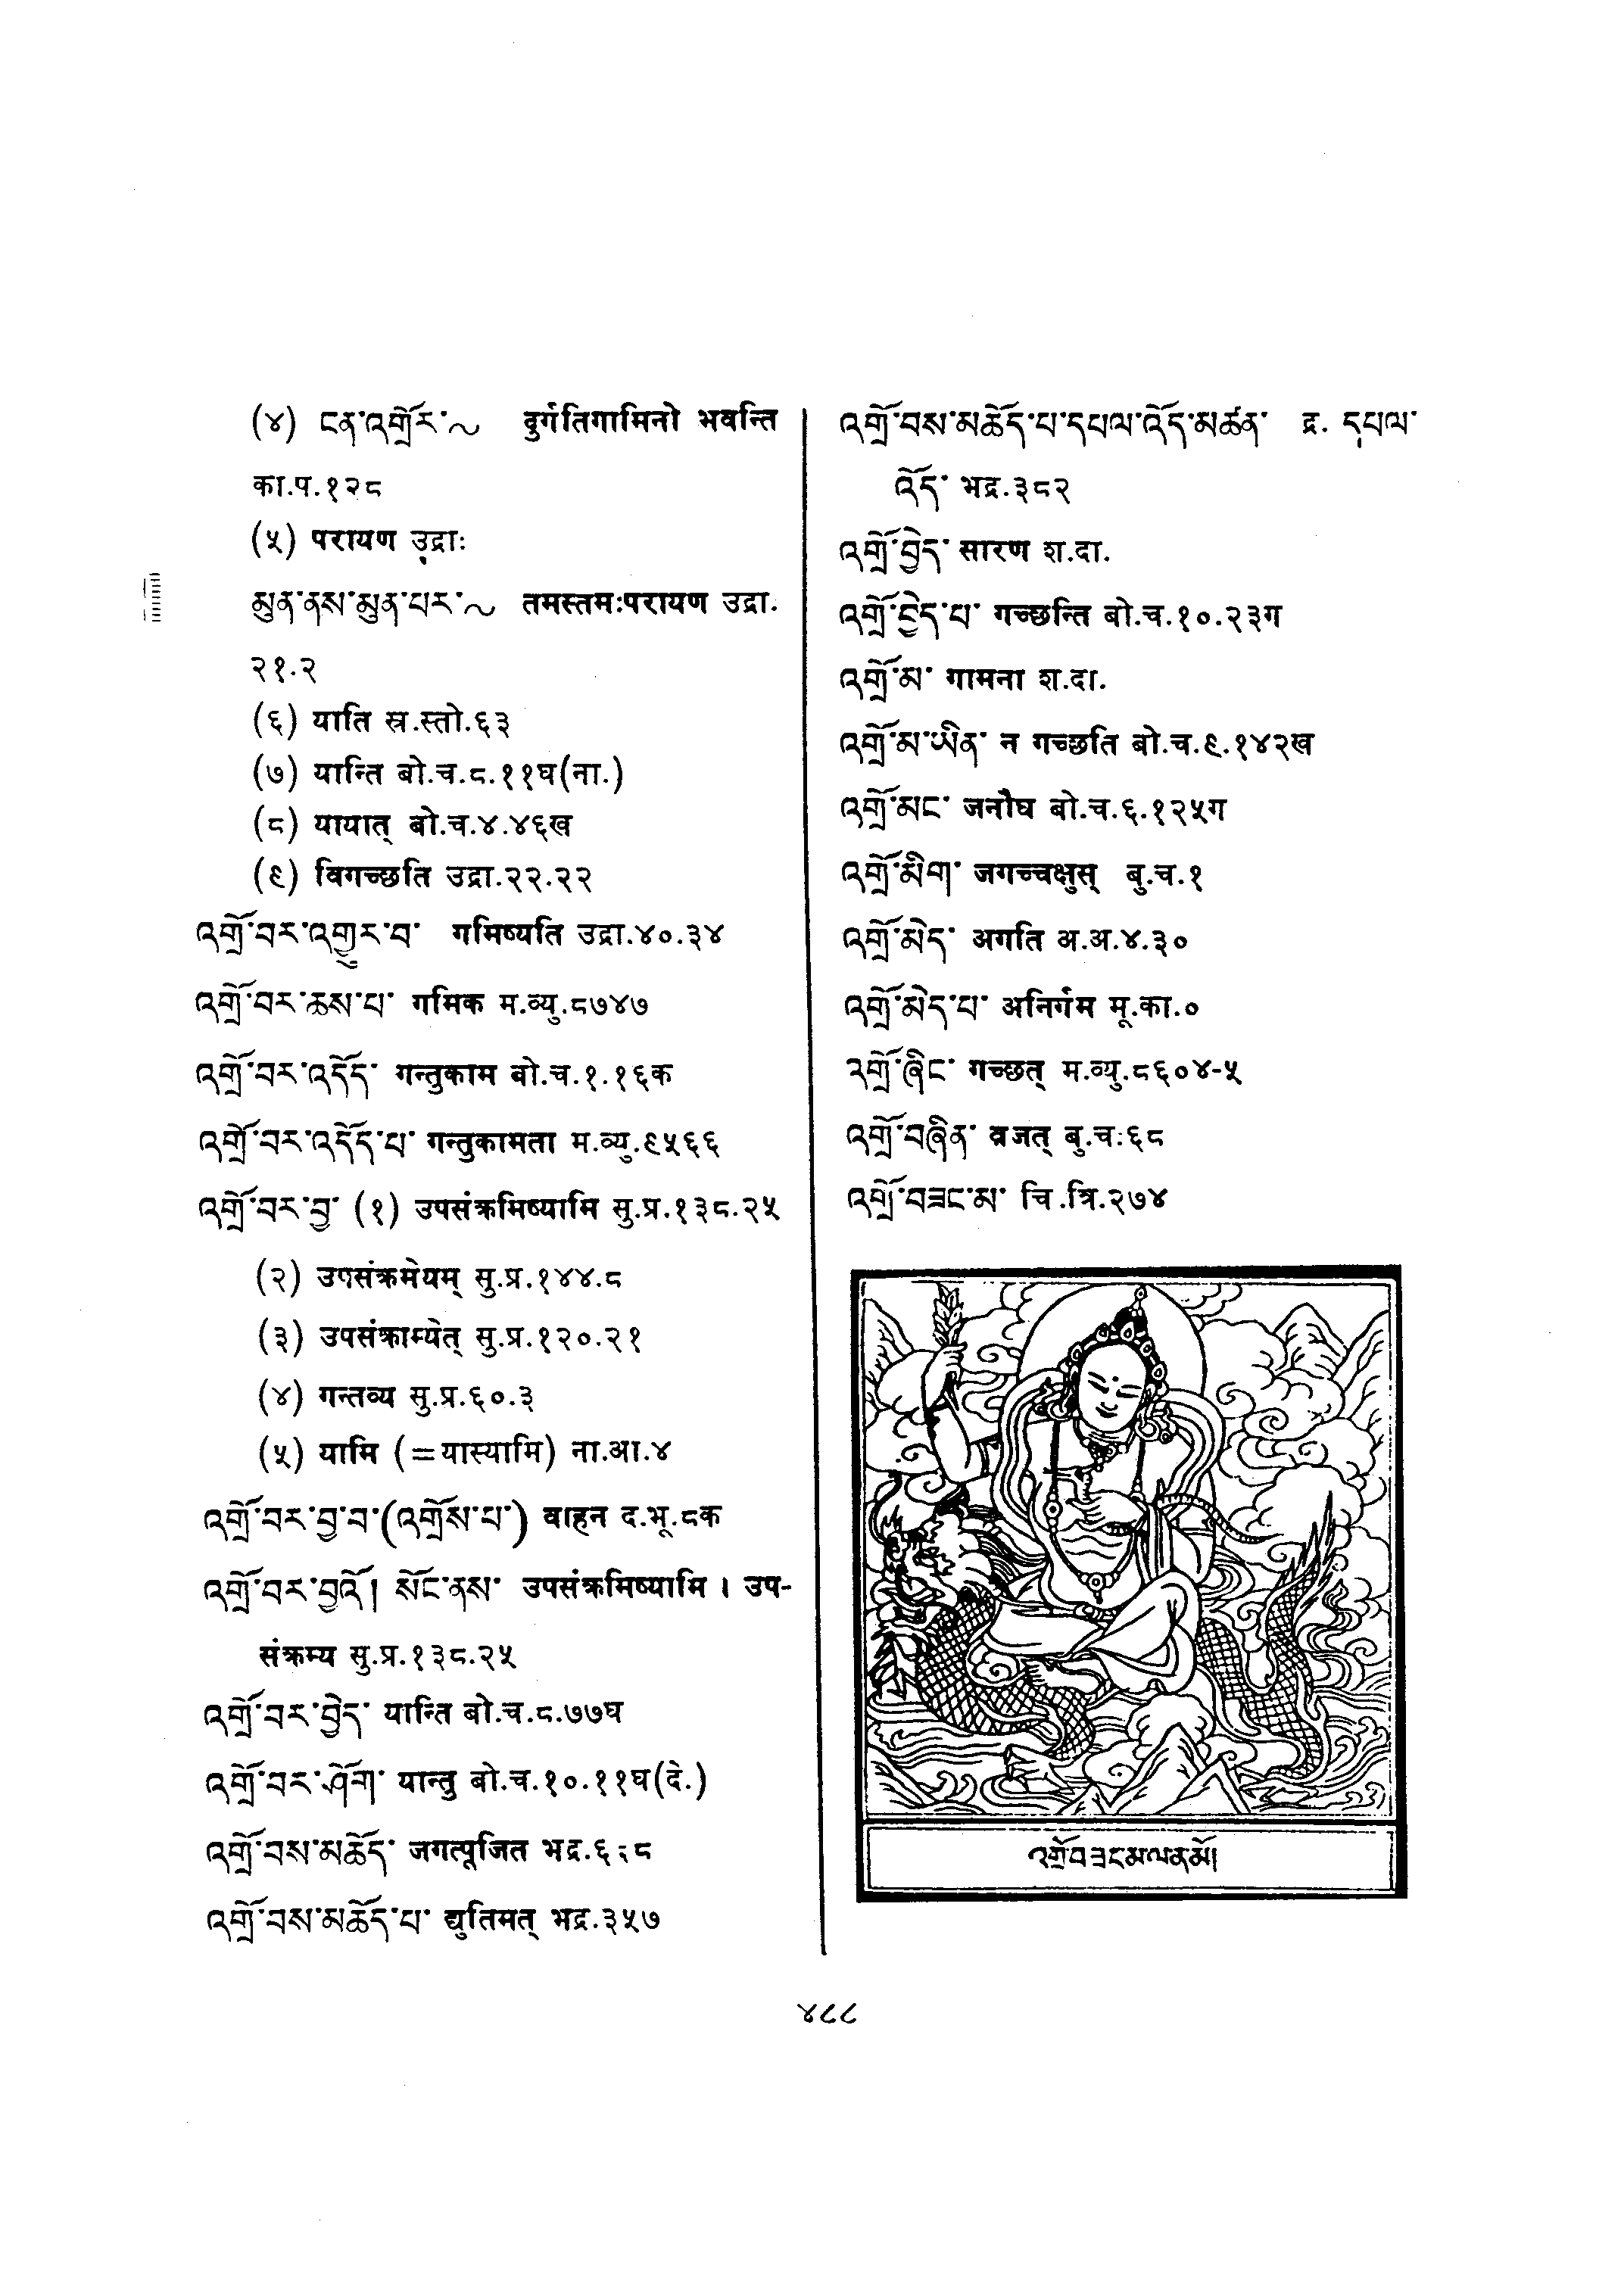 (४) ངན་འགྲོར་～ दुर्गतिगामिनो भवन्ति
का.प.१२८
(५) परायण उद्राः
མུན་ནས་མུན་པར་～ तमस्तमःपरायण उद्रा.
२१.२
(६) याति स्र.स्तो.६३
(७) यान्ति बो.च.८.११घ(ना.)
(८) यायात् बो.च.४.४६ख
(९) विगच्छति उद्रा.२२.२२
འགྲོ་བར་འགྱུར་བ་ गमिष्यति उद्रा.४०.३४
འགྲོ་བར་ཆས་པ་ गमिक म.व्यु.८७४७
འགྲོ་བར་འདོད་ गन्तुकाम बो.च.१.१६क
འགྲོ་བར་འདོད་པ་ गन्तुकामता म.व्यु.९५६६
འགྲོ་བར་བྱ་ (१) उपसंक्रमिष्यामि सु.प्र.१३८.२५
(२) उपसंक्रमेयम् सु.प्र.१४४.८
(३) उपसंक्राम्येत् सु.प्र.१२०.२१
(४) गन्तव्य सु.प्र.६०.३
(५) यामि (=यास्यामि) ना.आ.४
འགྲོ་བར་བྱ་བ་(འགྲོས་པ་) वाहन द.भू.८क
འགྲོ་བར་བྱའོ། སོང་ནས་ उपसंक्रमिष्यामि । उप-
संक्रम्य सु.प्र.१३८.२५
འགྲོ་བར་བྱེད་ यान्ति बो.च.८.७७घ
འགྲོ་བར་ཤོག་ यान्तु बो.च.१०.११घ(दे.)
འགྲོ་བས་མཆོད་ जगत्पूजित भद्र.
འགྲོ་བས་མཆོད་པ་ द्युतिमत् भद्र.३५७
འགྲོ་བས་མཆོད་པ་དཔལ་འོད་མཚན་ द्र. དཔལ་
འོད་ भद्र.३८२
འགྲོ་བྱེད་ सारण श.दा.
འགྲོ་བྱེད་པ་ गच्छन्ति बो.च.१०.२३ग
འགྲོ་མ་ गामना श.दा.
འགྲོ་མ་ཡིན་ न गच्छति बो.च.९.१४२ख
འགྲོ་མང་ जनौघ बो.च.६.१२५ग
འགྲོ་མིག་ जगच्चक्षुस् बु.च.१
འགྲོ་མེད་ अगति अ.अ.४.३०
འགྲོ་མེད་པ་ अनिर्गम मू.का.०
འགྲོ་ཞིང་ गच्छत् म.व्यु.८६०४-५
འགྲོ་བཞིན་ व्रजत् बु.च.६८
འགྲོ་བཟང་མ་ चि.त्रि.२७४
འགྲོ་བཟང་མ་ལ་ན་མོ།
४८८